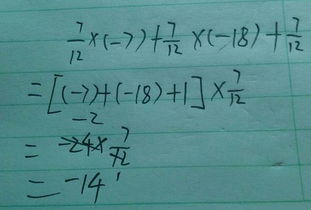 7/12×(-7)+7/12×(-18)+7/12
=[(-7)+(-18)+1]×7/12
-2
= -24×7/12
= -14